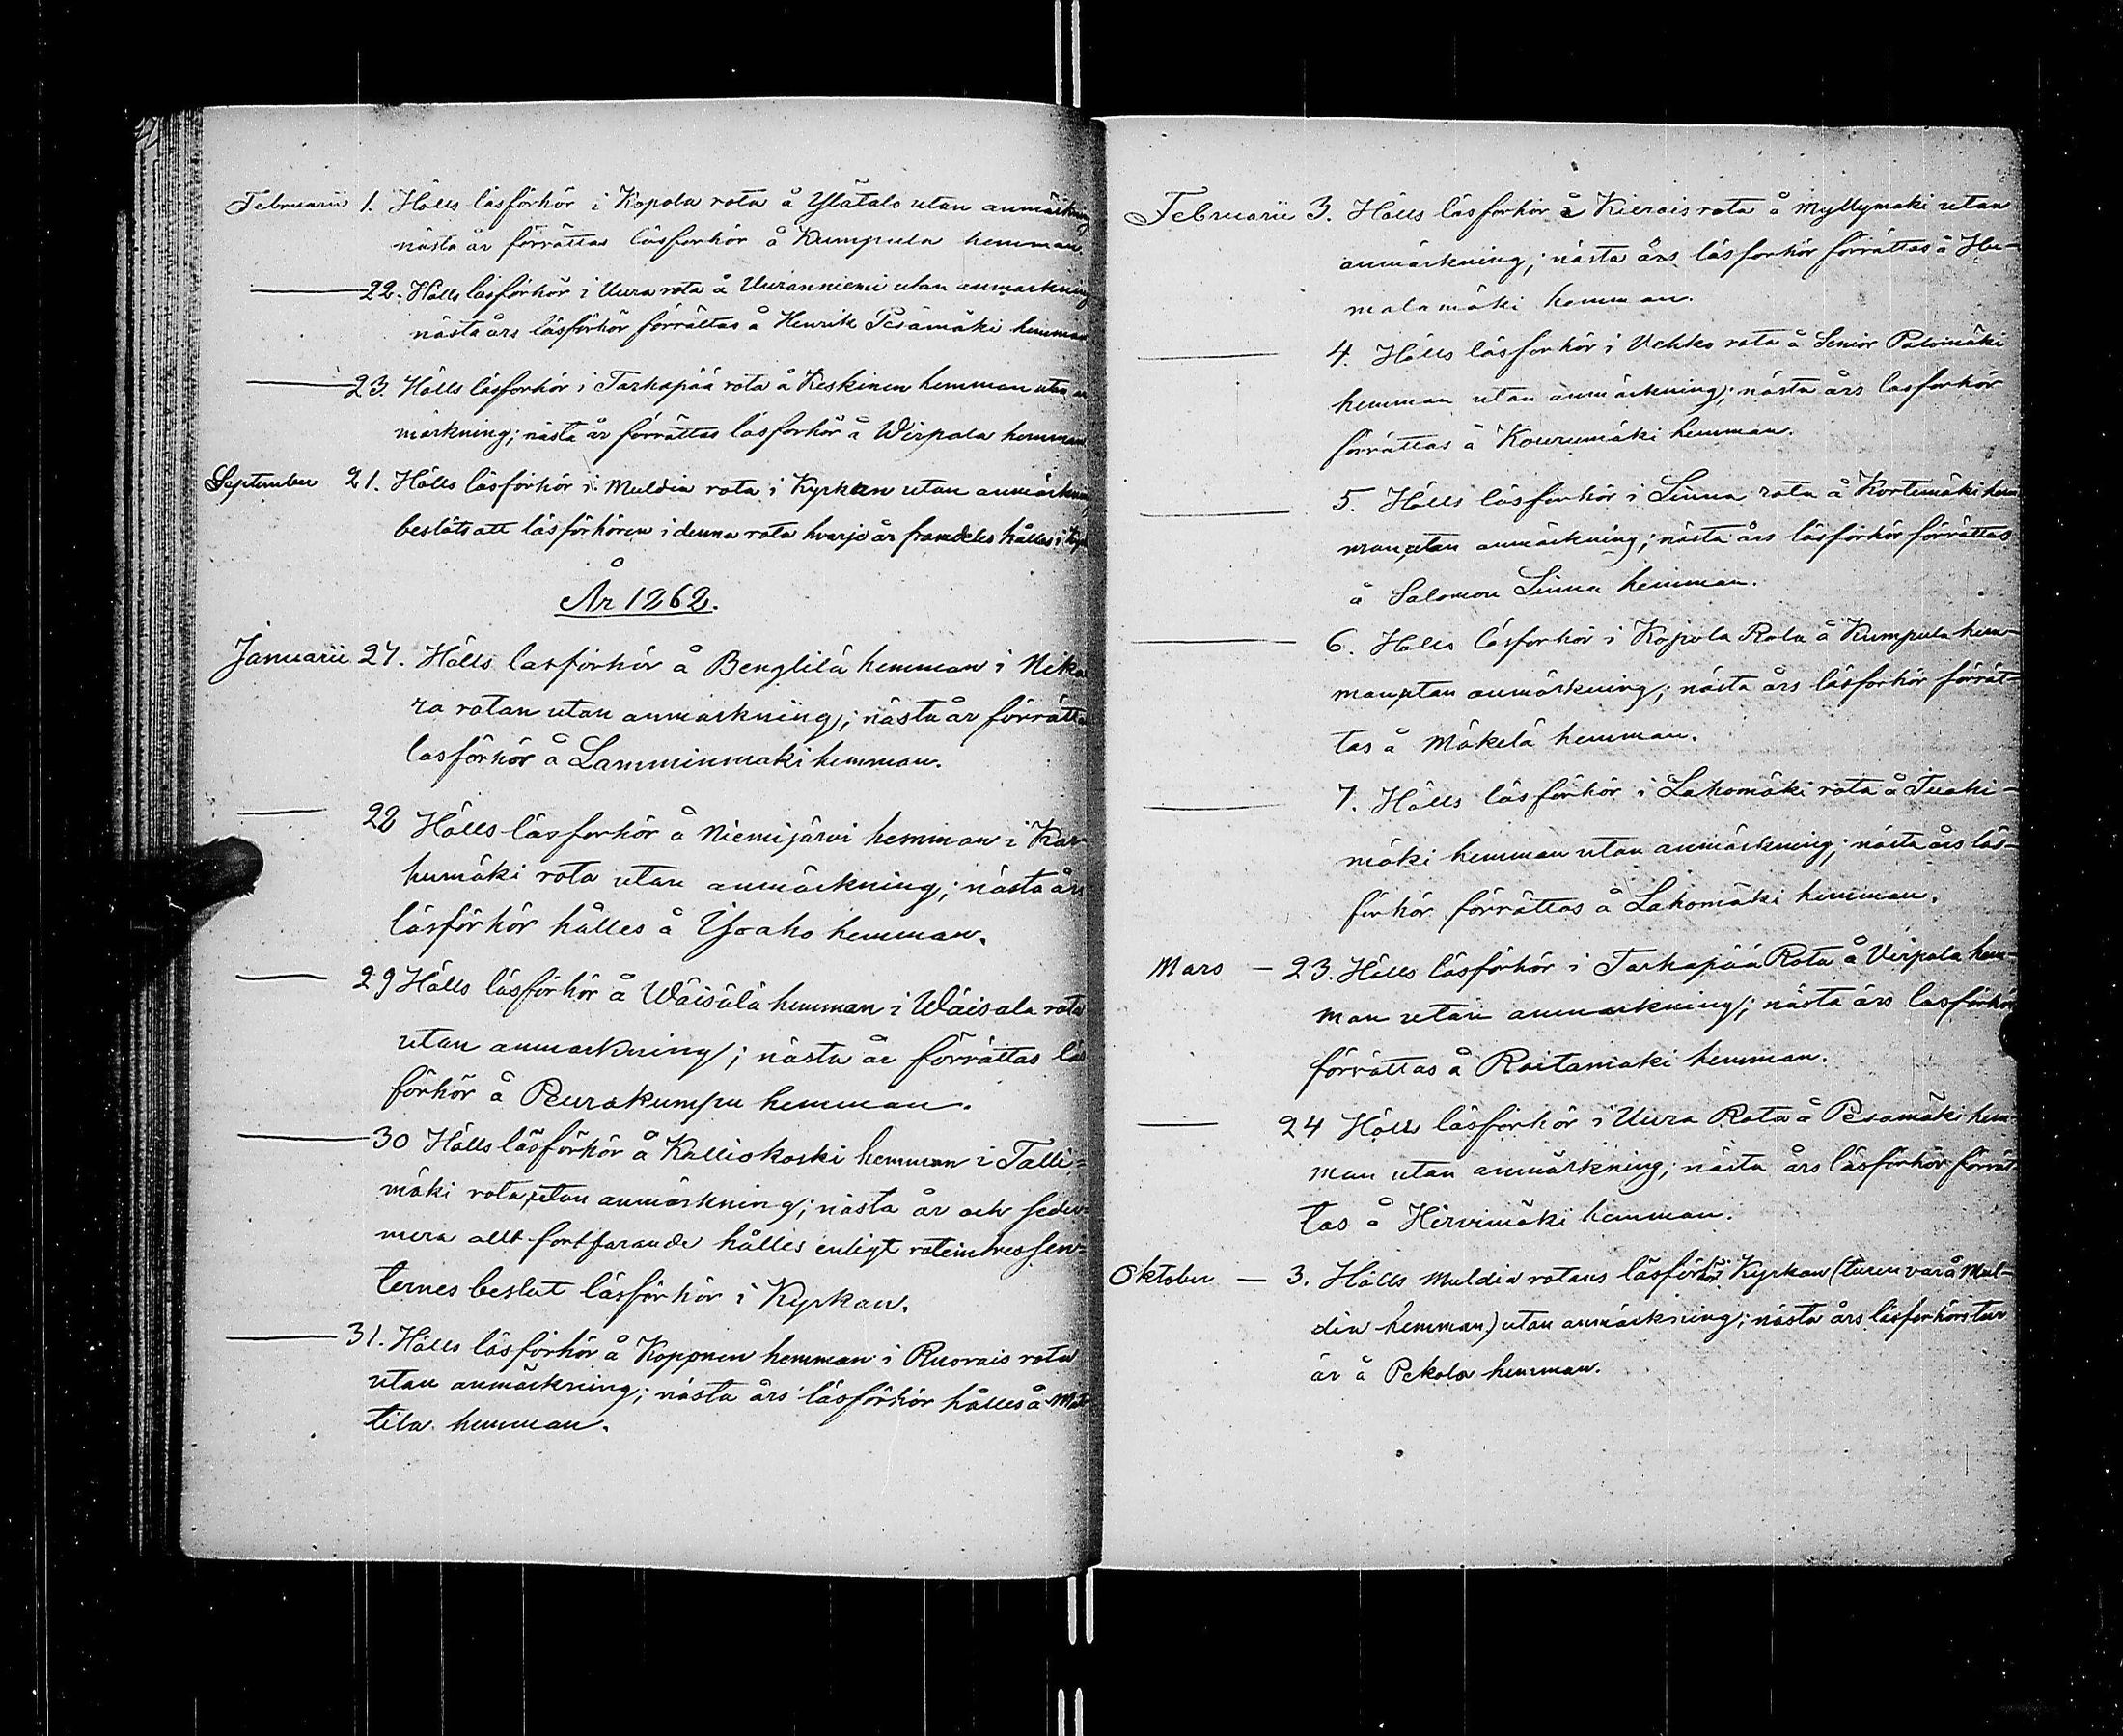 Februarii 1. Hölls läsförhör i Kopola rota å Ylätalo utan anmärkning
nästa år förrättas läsförhör å Kumpula hemman.
22. Hölls läsförhör i Uura rota å Uuranniemi utan anmärkning
nästa års läsförhör förrättas å Henrik Pesämäki hemman
23. Hölls läsförhör i Tarhapää rota å Keskinen hemman utan an
märkning; nästa år förrättas läsförhör å Wirpala hemman
September 21. Hölls läsförhör i Muldia rota i Kyrkan utan anmärkning
beslöts att läsförhören i denna rota hvarje år framdeles hålles i
År 1862.
Januarii 27. Hölls läsförhör å Benglilä hemman i Neka
ra rotan utan anmärkning; nästa år förrätta
läsförhör å Lamminmäki hemman.
28 Hölls läsförhör å Niemijärvi hemman i Kar
humäki rota utan anmärkning; nästa års
läsförhör hålles å Ysoaho hemman.
29 Hölls läsförhör å Wäisälä hemman i Wäisälä rota
utan anmärkning; nästa år förrättas läs
förhör å Peurakumpu hemman.
30 Hölls läsförhör å Kalliokoski hemman i Talli=
mäki rota, utan anmärkning; nästa år och seder=
mera allt fortfarande hålles enligt rotеintressen=
ternes beslut läsförhör i Kyrkan.
31. Hölls läsförhör å Kopponen hemman i Ruorais rota
utan anmärkning; nästa års läsförhör hålles å Mat
tila hemman.
Februarii 3. Hölls läsförhör å Kierais rota å Myllymäki utan
anmärkning; nästa års läsförhör förrättas å Hu-
malamäki hemman.
4. Hölls läsförhör i Vehko rota å Senior Palomäki
hemman utan anmärkning; nästa års läsförhör
förrättas å Kourumäki hemman.
5. Hölls läsförhör i Linna rota å Kortemäki hem
man, utan anmärkning; nästa års läsförhör förrättas
å Salomon Linna hemman.
6. Hölls läsförhör i Kopola Rota å Kumpula hem-
man, utan anmärkning; nästa års läsförhör förrät-
tas å Mäkelä hemman.
7. Hölls läsförhör i Lahomäki rota å Tuohi-
mäki hemman utan anmärkning; nästa års läs-
förhör förrättas å Lahomäki hemman.
Mars - 23. Hölls läsförhör i Tarhapää Rota å Virpala hem-
man utan anmärkning; nästa års läsförhör
förrättas å Raitamäki hemman.
24 Hölls läsförhör i Uura Rota å Pesämäki hem-
man utan anmärkning; nästa års läsförhör förrät-
tas å Hirvimäki hemman.
Oktober - 3. Hölls Muldia rotans läsförhör i Kyrkan (turen var å Mul-
dia hemman) utan anmärkning; nästa års läsförhörs tur
är å Pekola hemman.